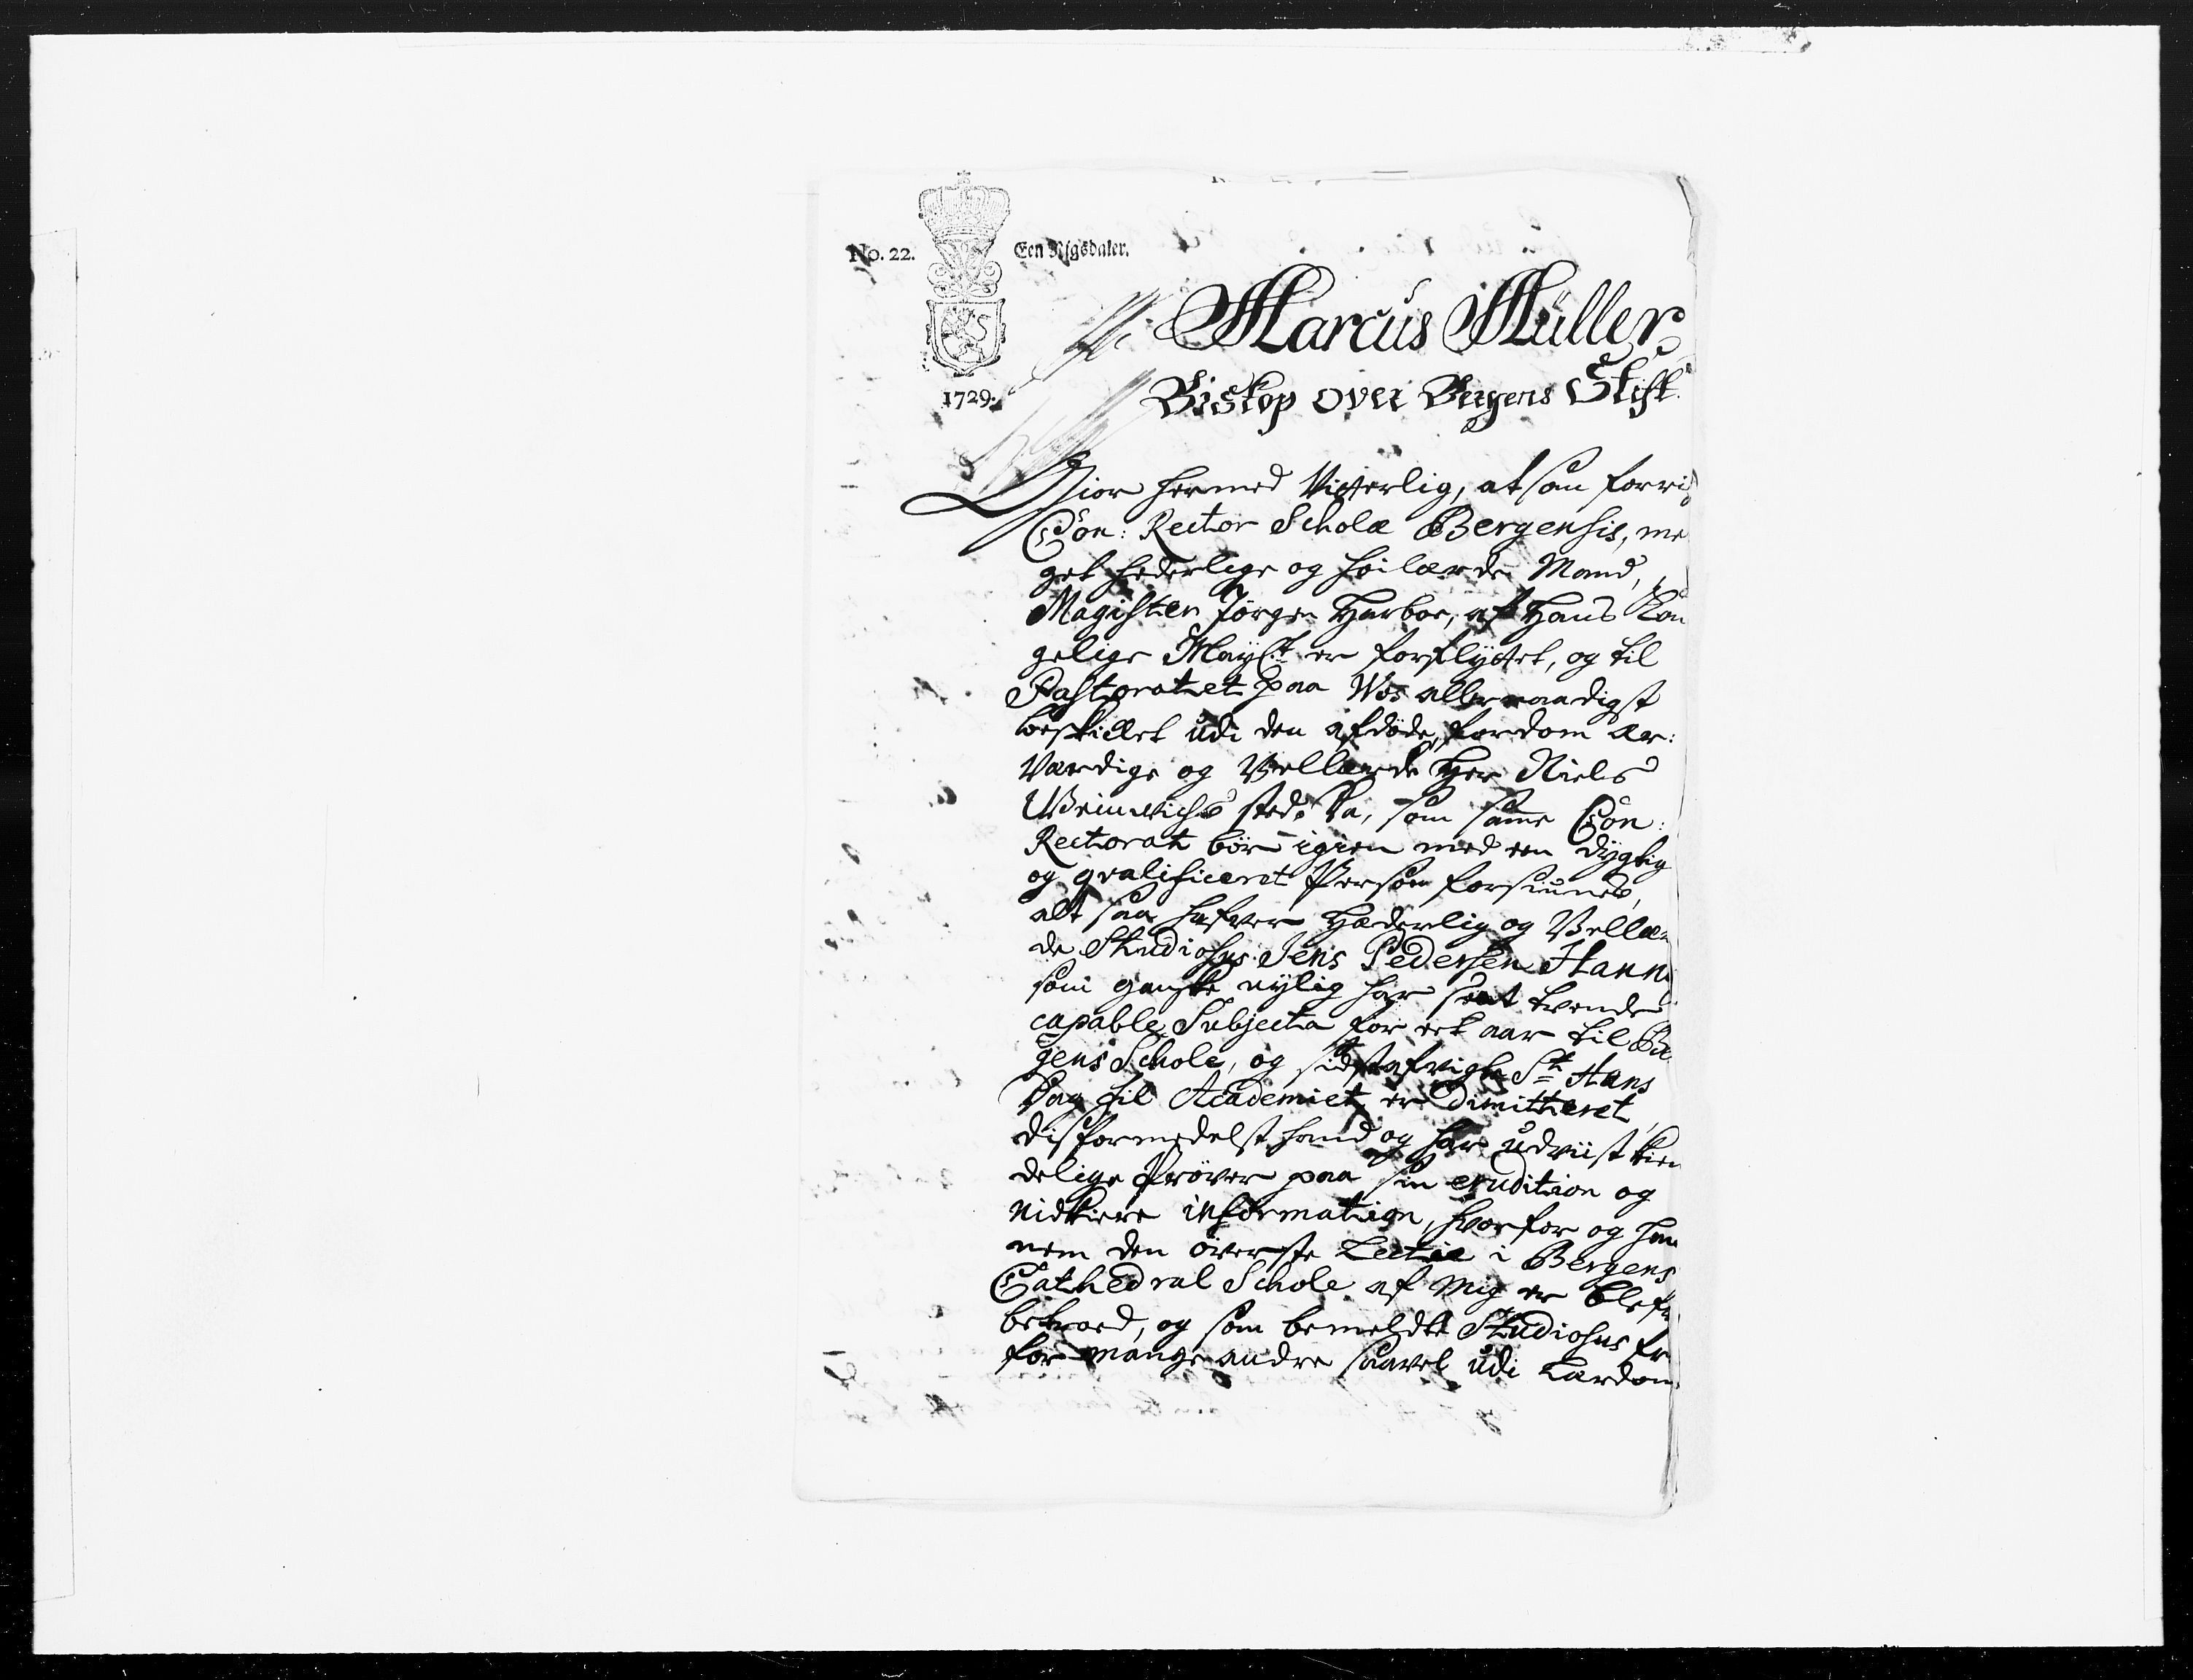 No. 22.
Een Rigsdaler.
1729.
Marcus Müller
Biskop over Bergens Stift
Giør hermed Vitterlig, at saa forrig
Con: Rector Scholæ Bergensis, me
get hederlige og høilærde Mand,
Magister Jørgen Harboe, af Hans Kon
gelige Mayst: er forflyttet, og til
Pastoratet paa Wos allernaadigst
beskicket udi den afdøde, fordom Ær:
Værdige og Vellærde Her Niels
Weinwichs sted: Da, som samme Con:
Rectorat bør igien med een dygtig
og qvalificeret Person forsiunes,
alt saa hafver Hæderlig og Vellær
de Studiosus Jens Pedersen Hann
som ganske nylig har sent tvende
capable Subjecta for eet aar til Be
gens Schole, og sidstafvigte St: Hans
Dag til Academiet er dimitteret,
disformedelst hand og har udviist kien
delige Prøver paa sin erudition og
nidkiere information, hvorfor og han
nem den øverste Lectie i Bergens
Cathedral Schole af mig er blefv
betroed, og som bemeldte Studiosus fr
for mange andre saavel udi Lærdom